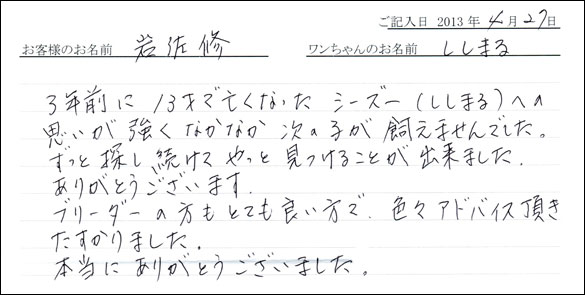 ご記入日 2013年4月27日
お客様のお名前 岩佐修 ワンちゃんのお名前 ししまる
3年前に13才で亡くなったシーズー(ししまる)への
思いが強くなかなか次の子が飼えませんでした。
ずっと探し続けてやっと見つけることが出来ました.
ありがとうございます.
ブリーダーの方もとても良い方で.色々アドバイス頂き
たすかりました。
本当にありがとうございました。